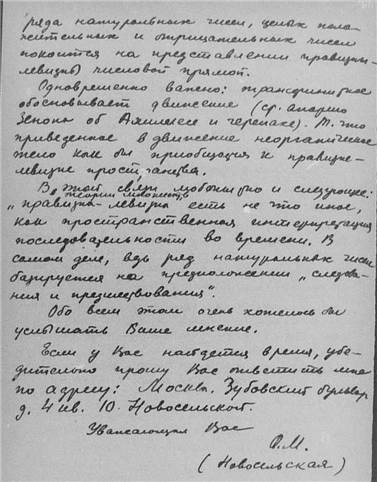 ряда натуральных чисел, целых поло-
жительных и отрицательных чисел
покоится на представлении правизны-
левизны числовой прямой.
Одновременно важно: трансфинитное
обосновывает движение (ср. апорию
Зенона об Ахиллесе и черепахе). Т. что
приведенное в движение неорганическое
тело как бы приобщается к правизне-
левизне пространства.
В этой связи любопытно и следующее:
в теории множеств
"правизна-левизна есть не что иное,
как пространственная интерпретация
последовательности во времени. В
самом деле, ведь ряд натуральных чисел
базируется на предположении "следова-
ния и предшествования".
Обо всем этом очень хотелось бы
услышать Ваше мнение.
Если у Вас найдется время, убе-
дительно прошу Вас ответить мне
по адресу: Москва. Зубовский бульвар
д. 4 кв. 10. Новосельской.
Уважающая Вас
О.М.
(Новосельская)